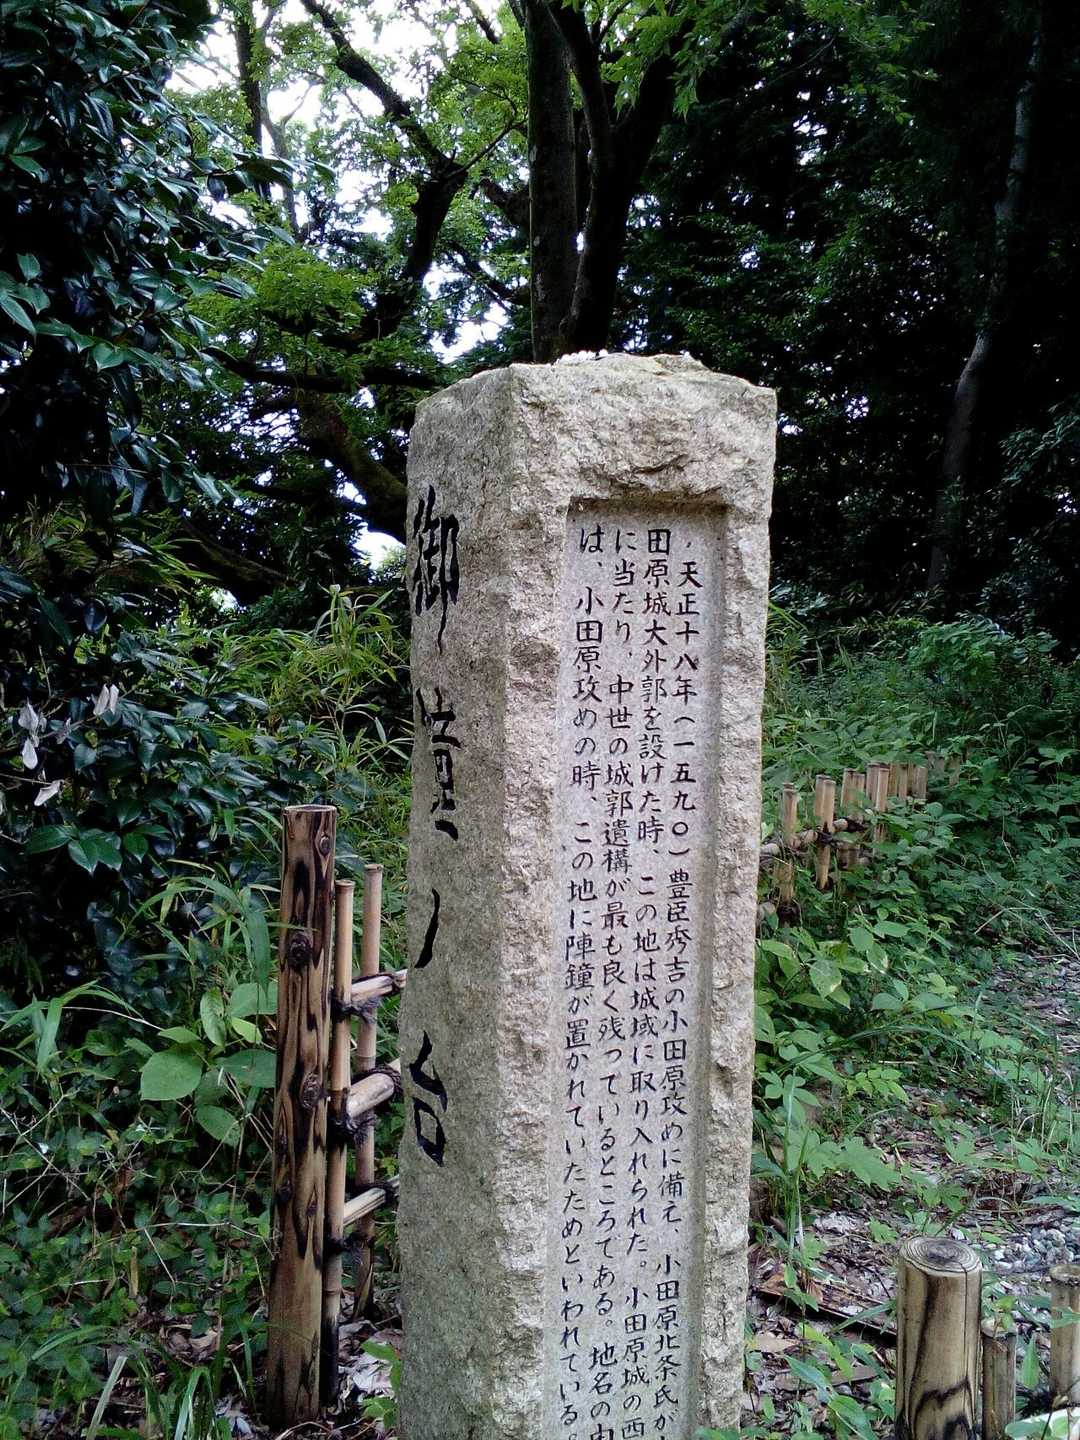 御鐘ノ台
天正十八年（一五九〇）豊臣秀吉の小田原攻めに備え、小田原北条氏が
田原城大外郭を設けた時、この地は城域に取り入れられた。小田原城の西
に当たり、中世の城郭遺構が最も良く残っているところである。地名の由
は、小田原攻めの時、この地に陣鐘が置かれていたためといわれている。